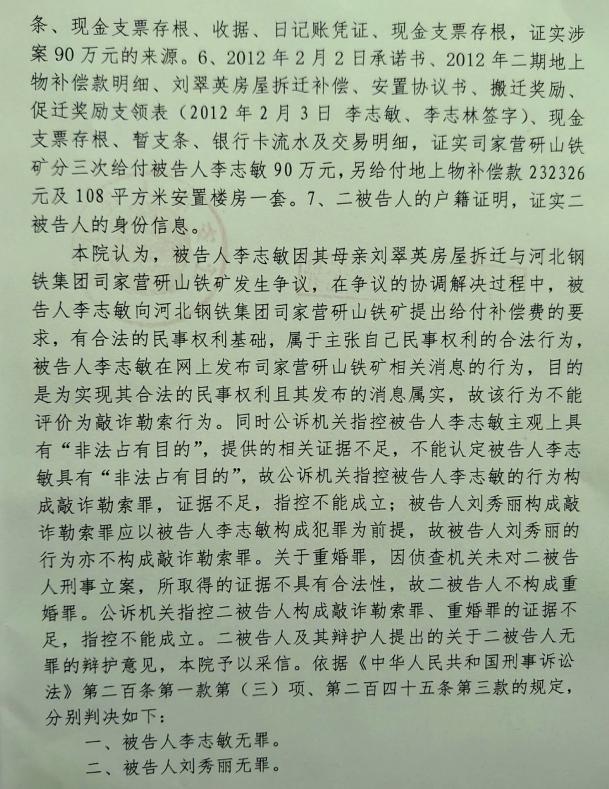 条、现金支票存根、收据、日记账凭证、现金支票存根，证实涉
案90万元的来源。6、2012年2月2日承诺书、2012年二期地上
物补偿款明细、刘翠英房屋拆迁补偿、安置协议书、搬迁奖励、
促迁奖励支领表（2012年2月3日 李志敏、李志林签字）、现金
支票存根、暂支条、银行卡流水及交易明细，证实司家营研山铁
矿分三次给付被告人李志敏90万元，另给付地上物补偿款232326
元及108平方米安置楼房一套。7、二被告人的户籍证明，证实二
被告人的身份信息。
本院认为，被告人李志敏因其母亲刘翠英房屋拆迁与河北钢
铁集团司家营研山铁矿发生争议，在争议的协调解决过程中，被
告人李志敏向河北钢铁集团司家营研山铁矿提出给付补偿费的要
求，有合法的民事权利基础，属于主张自己民事权利的合法行为，
被告人李志敏在网上发布司家营研山铁矿相关消息的行为，目的
是为实现其合法的民事权利且其发布的消息属实，故该行为不能
评价为敲诈勒索行为。同时公诉机关指控被告人李志敏主观上具
有“非法占有目的”，提供的相关证据不足，不能认定被告人李志
敏具有“非法占有目的”，故公诉机关指控被告人李志敏的行为构
成敲诈勒索罪，证据不足，指控不能成立；被告人刘秀丽构成敲
诈勒索罪应以被告人李志敏构成犯罪为前提，故被告人刘秀丽的
行为亦不构成敲诈勒索罪。关于重婚罪，因侦查机关未对二被告
人刑事立案，所取得的证据不具有合法性，故二被告人不构成重
婚罪。公诉机关指控二被告人构成敲诈勒索罪、重婚罪的证据不
足，指控不能成立。二被告人及其辩护人提出的关于二被告人无
罪的辩护意见，本院予以采信。依据《中华人民共和国刑事诉讼
法》第二百条第一款第（三）项、第二百四十五条第三款的规定，
分别判决如下：
一、被告人李志敏无罪。
二、被告人刘秀丽无罪。